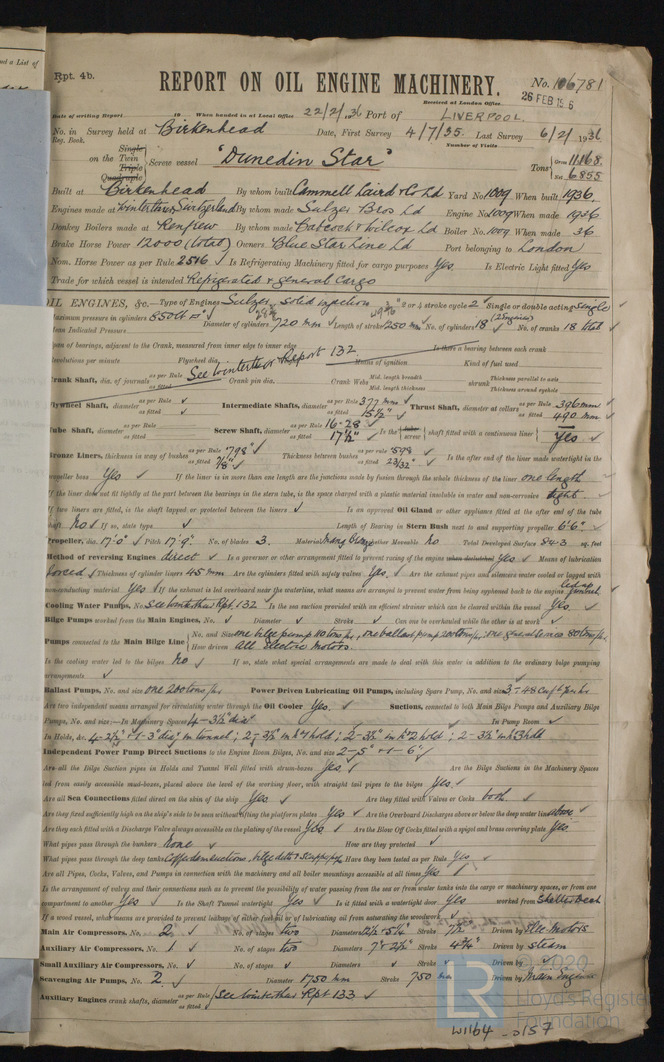 nd a List of
Rpt. 4b.
REPORT ON OIL ENGINE MACHINERY.
No. 106781
Received at London Office
26 FEB
Date of writing Report 19 When handed in at Local Office 22/2/36 Port of LIVERPOOL.
No. in Survey held at Birkenhead Date, First Survey 4/7/35. Last Survey 6/2/1936
Reg. Book. Number of Visits
on the Single Twin Triple Quadruple Screw vessel "Dunedin Star" Tons Gross 11168 Net 6855
Built at Birkenhead By whom built Cammell Laird & Co Ld Yard No. 1009 When built 1936
Engines made at Winterthur, Switzerland By whom made Sulzer Bros Ld Engine No. 1009 When made 1936
Donkey Boilers made at Renfrew By whom made Babcock & Wilcox Ld Boiler No. 1009 When made 36
Brake Horse Power 12000 (total) Owners Blue Star Line Ld Port belonging to London
Nom. Horse Power as per Rule 2516 Is Refrigerating Machinery fitted for cargo purposes Yes Is Electric Light fitted Yes
Trade for which vessel is intended Refrigerated & general Cargo
OIL ENGINES, &c.—Type of Engines Sulzer, solid injection 2 or 4 stroke cycle 2 Single or double acting single
Maximum pressure in cylinders Diameter of cylinders 720 mm Length of stroke 1250 mm No. of cylinders 18 (2 Engines) No. of cranks 18 total
Mean Indicated Pressure
Span of bearings, adjacent to the Crank, measured from inner edge to inner edge Is there a bearing between each crank
Revolutions per minute Flywheel dia. See Winterthur Report 132 Means of ignition Kind of fuel used
Crank Shaft, dia. of journals as per Rule as fitted Crank pin dia. Crank Webs Mid. length breadth Mid. length thickness shrunk Thickness parallel to axis Thickness around eyehole
Flywheel Shaft, diameter as per Rule as fitted Intermediate Shafts, diameter as per Rule 377 mm as fitted 15½" Thrust Shaft, diameter at collars as per Rule 396 mm as fitted 490 mm
Tube Shaft, diameter as per Rule as fitted Screw Shaft, diameter as per Rule 16.28 as fitted 17½" Is the tube screw shaft fitted with a continuous liner Yes
Bronze Liners, thickness in way of bushes as per Rule .798" as fitted 7/8" Thickness between bushes as per Rule .598 as fitted 23/32" Is the after end of the liner made watertight in the
propeller boss Yes If the liner is in more than one length are the junctions made by fusion through the whole thickness of the liner one length
If the liner does not fit tightly at the part between the bearings in the stern tube, is the space charged with a plastic material insoluble in water and non-corrosive tight
If two liners are fitted, is the shaft lapped or protected between the liners Is an approved Oil Gland or other appliance fitted at the after end of the tube
shaft No If so, state type Length of Bearing in Stern Bush next to and supporting propeller 6'6"
Propeller, dia. 17'0" Pitch 17'9" No. of blades 3. Material Mang bronze whether Moveable No Total Developed Surface 84.3 sq. feet
Method of reversing Engines direct Is a governor or other arrangement fitted to prevent racing of the engine when declutched Yes Means of lubrication
forced Thickness of cylinder liners 45 mm Are the cylinders fitted with safety valves Yes. Are the exhaust pipes and silencers water cooled or lagged with
non-conducting material Yes If the exhaust is led overboard near the waterline, what means are provided to prevent water from being syphoned back to the engine led up funnel
Cooling Water Pumps, No. See Winterthur Rpt. 132 Is the sea suction provided with an efficient strainer which can be cleared within the vessel Yes.
Bilge Pumps worked from the Main Engines, No. Diameter Stroke Can one be overhauled while the other is at work
Pumps connected to the Main Bilge Line No. and Size one bilge pump 80 tons/hr, one ballast pump 200 tons/hr, one general service 80 tons/hr. How driven all Electric Motors.
Is the cooling water led to the bilges No If so, state what special arrangements are made to deal with this water in addition to the ordinary bilge pumping
arrangements
Ballast Pumps, No. and size one 200 tons/hr Power Driven Lubricating Oil Pumps, including Spare Pump, No. and size 3 - 48
Are two independent means arranged for circulating water through the Oil Cooler Yes. Suctions, connected to both Main Bilge Pumps and Auxiliary Bilge
Pumps, No. and size:—In Machinery Spaces 4 - 3½" dia In Pump Room
In Holds, &c. 4 - 2½" + 1 - 3" dia in tunnel; 2 - 3½" in No 1 hold; 2 - 3½" in No 2 hold; 2 - 3½" in No 3 hold
Independent Power Pump Direct Suctions to the Engine Room Bilges, No. and size 2 - 5" + 1 - 6"
Are all the Bilge Suction pipes in Holds and Tunnel Well fitted with strum-boxes Yes. Are the Bilge Suctions in the Machinery Spaces
led from easily accessible mud-boxes, placed above the level of the working floor, with straight tail pipes to the bilges Yes.
Are all Sea Connections fitted direct on the skin of the ship Yes Are they fitted with Valves or Cocks both.
Are they fixed sufficiently high on the ship's side to be seen without lifting the platform plates Yes Are the Overboard Discharges above or below the deep water line above
Are they each fitted with a Discharge Valve always accessible on the plating of the vessel Yes Are the Blow Off Cocks fitted with a spigot and brass covering plate Yes.
What pipes pass through the bunkers None How are they protected
What pipes pass through the deep tanks Have they been tested as per Rule Yes
Are all Pipes, Cocks, Valves, and Pumps in connection with the machinery and all boiler mountings accessible at all times Yes
Is the arrangement of valves and their connections such as to prevent the possibility of water passing from the sea or from water tanks into the cargo or machinery spaces, or from one
compartment to another Yes Is the Shaft Tunnel watertight Yes Is it fitted with a watertight door Yes worked from Shelter Deck
If a wood vessel, what means are provided to prevent leakage of either fuel oil or of lubricating oil from saturating the woodwork
Main Air Compressors, No. 2 No. of stages two Diameters Stroke 7½" Driven by Elec Motors
Auxiliary Air Compressors, No. 1 No. of stages two Diameters 7" + 2½" Stroke 4¾" Driven by steam
Small Auxiliary Air Compressors, No. No. of stages Diameters Stroke Driven by
Scavenging Air Pumps, No. 2. Diameter 1750 mm Stroke 750 mm Driven by Main Engines
Auxiliary Engines crank shafts, diameter as per Rule as fitted See Winterthur Rpt 133
© 2020
LR
Lloyd's Register
Foundation
W1164-0157